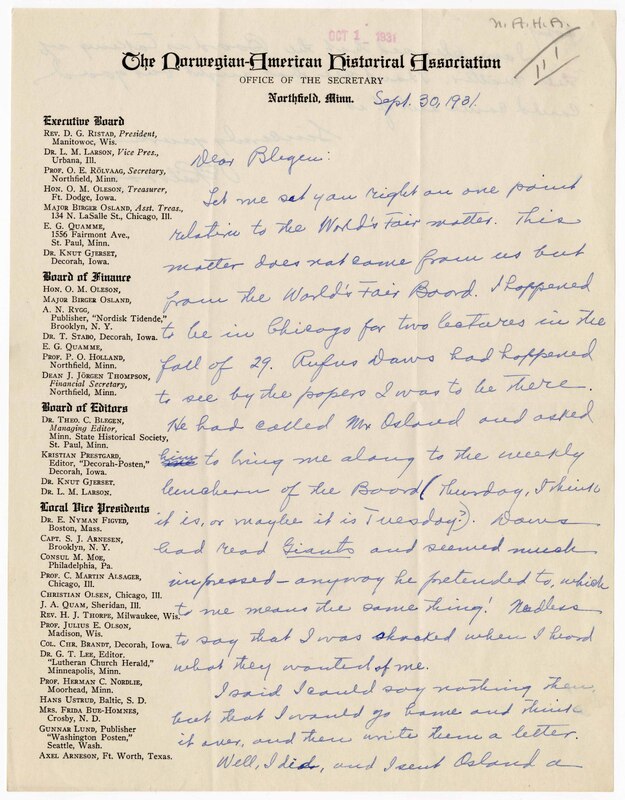 N.A.H.A.
OCT 2 1931
The Norwegian-American Historical Association
OFFICE OF THE SECRETARY
Northfield, Minn.
Sept. 30, 1931.
Executive Board
REV. D. G. RISTAD, President,
Manitowoc, Wis.
DR. L. M. LARSON, Vice Pres.,
Urbana, Ill.
PROF. O. E. RÖLVAAG, Secretary,
Northfield, Minn.
HON. O. M. OLESON, Treasurer,
Ft. Dodge, Iowa.
MAJOR BIRGER OSLAND, Asst. Treas.,
134 N. LaSalle St., Chicago, Ill.
E. G. QUAMME,
1556 Fairmont Ave.,
St. Paul, Minn.
DR. KNUT GJERSET,
Decorah, Iowa.
Board of Finance
HON. O. M. OLESON,
MAJOR BIRGER OSLAND,
A. N. RYGG,
Publisher, "Nordisk Tidende,"
Brooklyn, N. Y.
DR. T. STABO, Decorah, Iowa.
E. G. QUAMME,
PROF. P. O. HOLLAND,
Northfield, Minn.
DEAN J. JÖRGEN THOMPSON,
Financial Secretary,
Northfield, Minn.
Board of Editors
DR. THEO. C. BLEGEN,
Managing Editor,
Minn. State Historical Society,
St. Paul, Minn.
KRISTIAN PRESTGARD,
Editor, "Decorah-Posten,"
Decorah, Iowa.
DR. KNUT GJERSET.
DR. L. M. LARSON.
Local Vice Presidents
DR. E. NYMAN FIGVED,
Boston, Mass.
CAPT. S. J. ARNESEN,
Brooklyn, N. Y.
CONSUL M. MOE,
Philadelphia, Pa.
PROF. C. MARTIN ALSAGER,
Chicago, Ill.
CHRISTIAN OLSEN, Chicago, Ill.
J. A. QUAM, Sheridan, Ill.
REV. H. J. THORPE, Milwaukee, Wis.
PROF. JULIUS E. OLSON,
Madison, Wis.
COL. CHR. BRANDT, Decorah, Iowa.
DR. G. T. LEE, Editor
"Lutheran Church Herald,"
Minneapolis, Minn.
PROF. HERMAN C. NORDLIE,
Moorhead, Minn.
HANS USTRUD, Baltic, S. D.
MRS. FRIDA BUE-HOMNES,
Crosby, N. D.
GUNNAR LUND, Publisher
"Washington Posten,"
Seattle, Wash.
AXEL ARNESON, Ft. Worth, Texas.
Dear Blegen:
Let me set you right on one point
relation to the World's Fair matter. This
matter does not come from us but
from the World's Fair Board. I happened
to be in Chicago for two lectures in the
fall of 29. Rufus Daws had happened
to see by the papers I was to be there.
He had called Mr Osland and asked
him to bring me along to the weekly
luncheon of the Board (Thursday, I think
it is, or maybe it is Tuesday?). Daws
had read Giants and seemed much
impressed – anyway he pretended to, which
to me means the same thing! Needless
to say that I was shocked when I heard
what they wanted of me.
I said I could say nothing then,
but that I would go home and think
it over, and then write them a letter.
Well, I did, and I sent Osland a